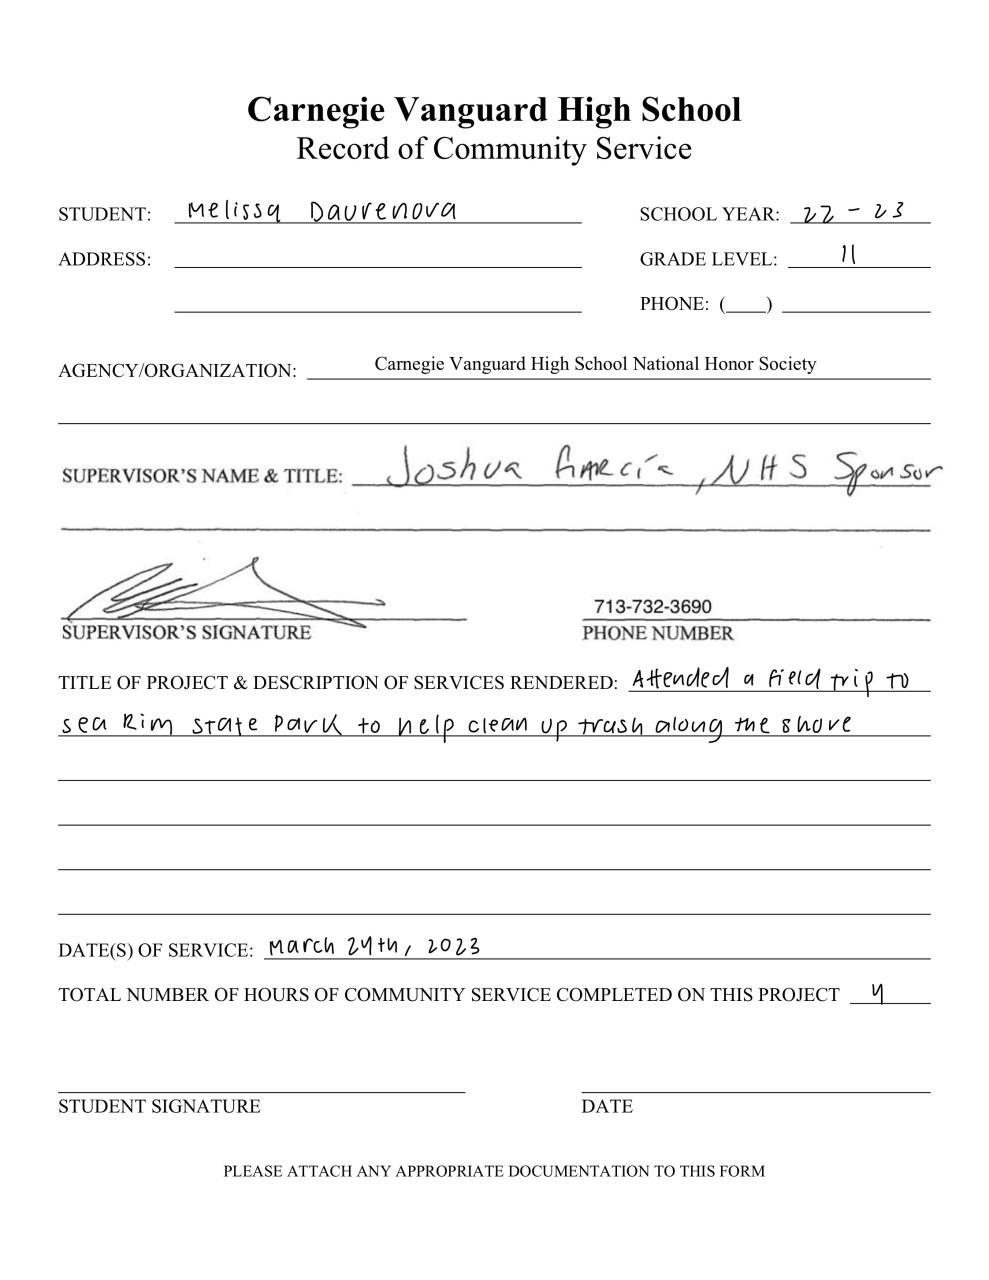 Carnegie Vanguard High School
Record of Community Service
STUDENT: Melissa Daurenova SCHOOL YEAR: 22 - 23
ADDRESS: GRADE LEVEL: 11
PHONE: (____)
AGENCY/ORGANIZATION: Carnegie Vanguard High School National Honor Society
SUPERVISOR'S NAME & TITLE: Joshua Garcia, NHS Sponsor
713-732-3690
SUPERVISOR'S SIGNATURE PHONE NUMBER
TITLE OF PROJECT & DESCRIPTION OF SERVICES RENDERED: Attended a field trip to
Sea Rim State Park to help clean up trash along the shore
DATE(S) OF SERVICE: March 24th, 2023
TOTAL NUMBER OF HOURS OF COMMUNITY SERVICE COMPLETED ON THIS PROJECT 4
STUDENT SIGNATURE DATE
PLEASE ATTACH ANY APPROPRIATE DOCUMENTATION TO THIS FORM